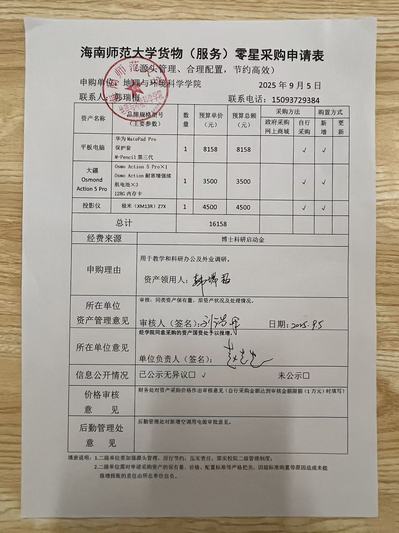 海南师范大学货物（服务）零星采购申请表
（源头管理、合理配置，节约高效）
申购单位：地理与环境科学学院 2025年9月5日
联系人：韩瑞 联系电话：15093729384
资产名称 品牌规格型号（主要参数） 数量 预算单价 预算总额 采购方法 购置方式
（元） （元） 政府采购网上商城 自行采购 新增 更新
平板电脑 华为 MatePad Pro 保护套 M-Pencil 第三代 1 8158 8158 √ √
大疆 Osmond Action 5 Pro Osmo Action 5 Pro×1 Osmo Action 耐寒增强续航电池×3 128G 内存卡 1 3500 3500 √ √
投影仪 极米（XM13R）Z7X 1 4500 4500 √ √
合计 16158
经费来源 博士科研启动金
申购理由 用于教学和科研办公及外业调研。
资产领用人：
所在单位资产管理意见 审核：同类资产保有量、原资产状况及处理情况。
审核人（签名）： 日期：2025.9.5
所在单位意见 经学院同意采购的资产国资处予以报增。
单位负责人（签名）：
信息公开情况 已公示无异议☑ 未公示☐
价格审核意见 财务处对资产采购价格作出审核意见（自行采购金额达到审核金额限额（1万元）时填写）
后勤管理处意见 后勤管理处对新增空调用电做审批意见。
填表说明：1.二级单位要加强源头管理，厉行节约，压实责任，落实校院二级管理制度。
2.二级单位需对申请采购资产的保有量、价格、配置标准等严格把关，因超标准购置等原因造成未能
报增报账的责任由所在单位自负。